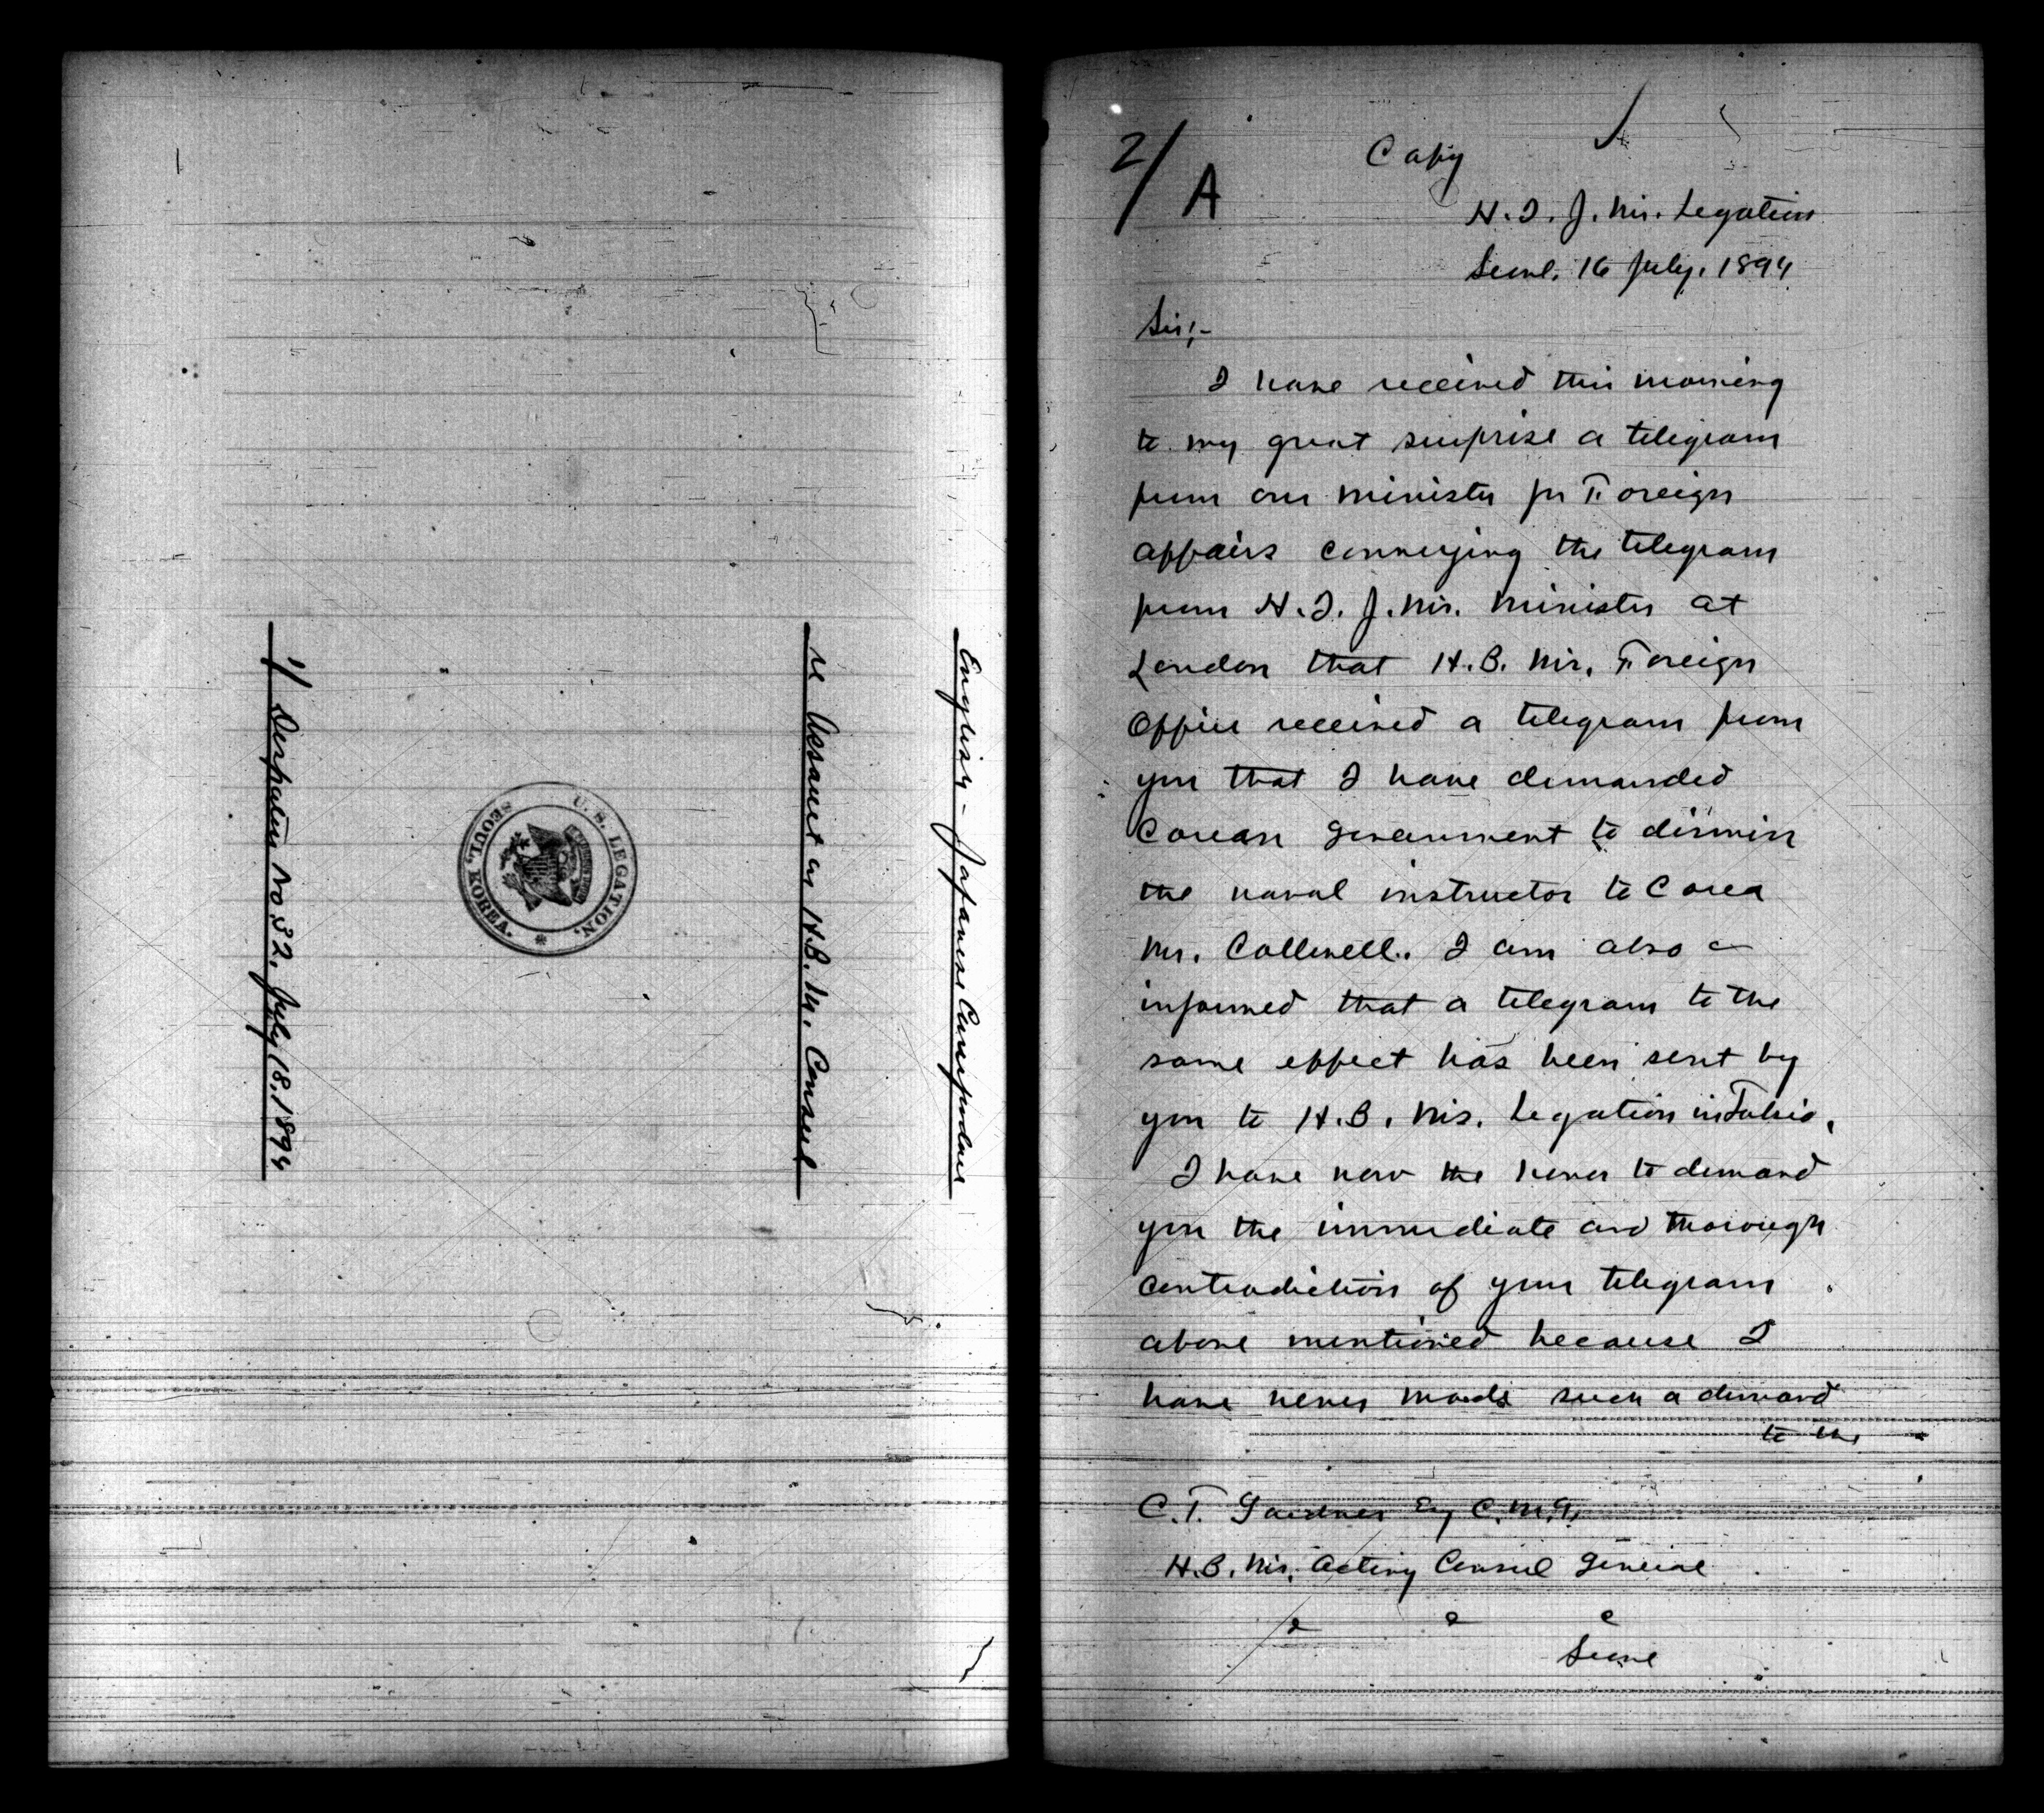 English - Japanese Correspondence
re Assault on H.B.M. Consul
U. S. LEGATION,
SEOUL, KOREA.
1/ Despatch No 32, July 18, 1894
2/ A
Copy
H. I. J. Ms. Legation
Seoul, 16 July, 1894
Sir;-
I have received this morning
to my great surprise a telegram
from our minister for Foreign
affairs conveying the telegram
from H. I. J. Ms. Minister at
London that H.B. Ms. Foreign
Office received a telegram from
you that I have demanded
Corean Government to dismiss
the naval instructor to Corea
Mr. Callwell. I am also
informed that a telegram to the
same effect has been sent by
you to H.B. Ms. Legation in Tokio.
I have now the honor to demand
you the immediate and thorough
contradiction of your telegram
above mentioned because I
have never made such a demand
to the
C. T. Gardner Esq C. M. G.
H.B. Ms. Acting Consul General
Seoul